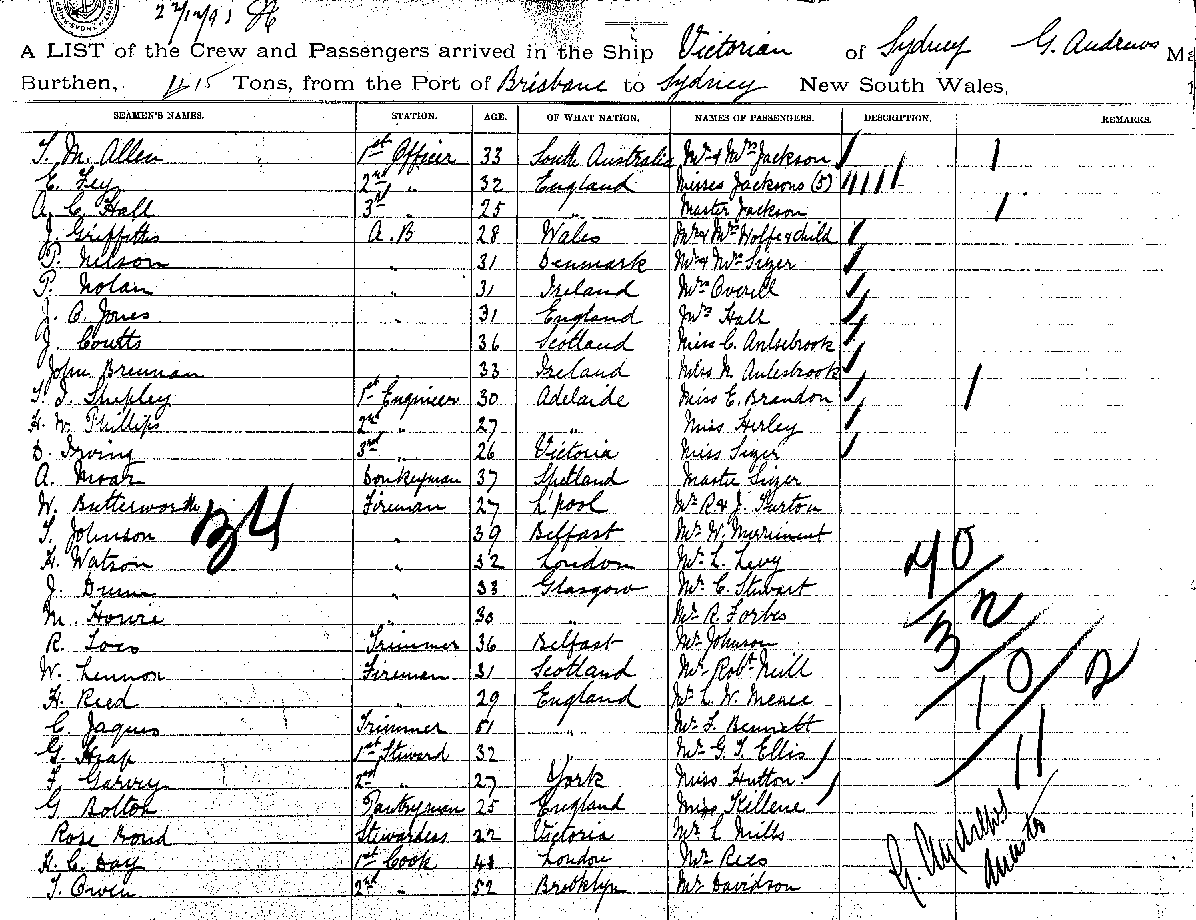 22/12/91
A LIST of the Crew and Passengers arrived in the Ship Victorian of Sydney G. Andrews Ma
Burthen, Tons, from the Port of Brisbane to Sydney New South Wales,
SEAMEN'S NAMES. STATION. AGE. OF WHAT NATION. NAMES OF PASSENGERS. DESCRIPTION. REMARKS.
T. M. Allen 1st Officer 33 South Australia Mr & Mrs Jackson
E. Fey 2nd " 32 England Misses Jacksons (5)
A. C. Hall 3rd " 25 " Master Jackson
J. Griffiths A.B 28 Wales Mr & Mrs Wolfe & child
P. Nilson " 31 Denmark Mr & Mrs Sizer
P. Nolan " 31 Ireland Mrs Overill
J. O. Jones " 31 England Mrs Hall
J. Coutts " 36 Scotland Miss C.
John Brennan 33 Ireland Miss
T. J. Shipley 1st Engineer 30 Adelaide Miss E. Brandon
H. W. Phillips 2nd " 27 " Miss Hirley
D. Irving 3rd " 26 Victoria Miss Sizer
A. Moar Donkeyman 37 Shetland Master Sizer
W. Butterworth Fireman 27 L'pool Mr R & J. Purton
T. Johnson " 39 Belfast Mr W. Merriment
H. Watson " 32 London Mr L. Levy
J. Dunn " 33 Glasgow Mr C. Stewart
M. Howie 30 " Mr R. Forbes
R. Trimmer 36 Belfast Mr Johnson
W. Lennon Fireman 31 Scotland Mr Robt Neill
H. Reed " 29 England Mr L. W.
C. Jaques Trimmer 51 " Mr F. Bennett
G. Heap 1st Steward 32 Mr G. T. Ellis
F. Garvey 2nd " 27 York Miss Hutton
G. Bolton Pantryman 25 England Miss Kellene
Rose Stewardess 22 Victoria Mr L. Mills
H. C. Day 1st Cook 41 London Mr Rees
T. Owen 2nd " 52 Brooklyn Mr Davidson
40
32
10 2
11
G. Andrews